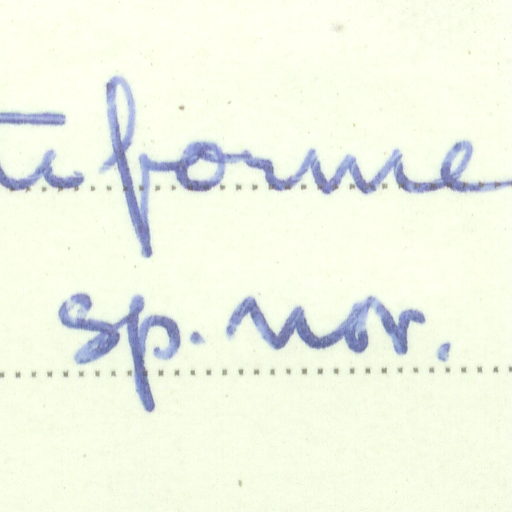 tiforme
sp. nov.